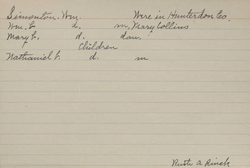 Simonton. Wm. Were in Hunterdon Co.
Wm. b d. m. Mary Collins
Mary b. d. dau.
Children
Nathaniel b. d. m
Ruth A